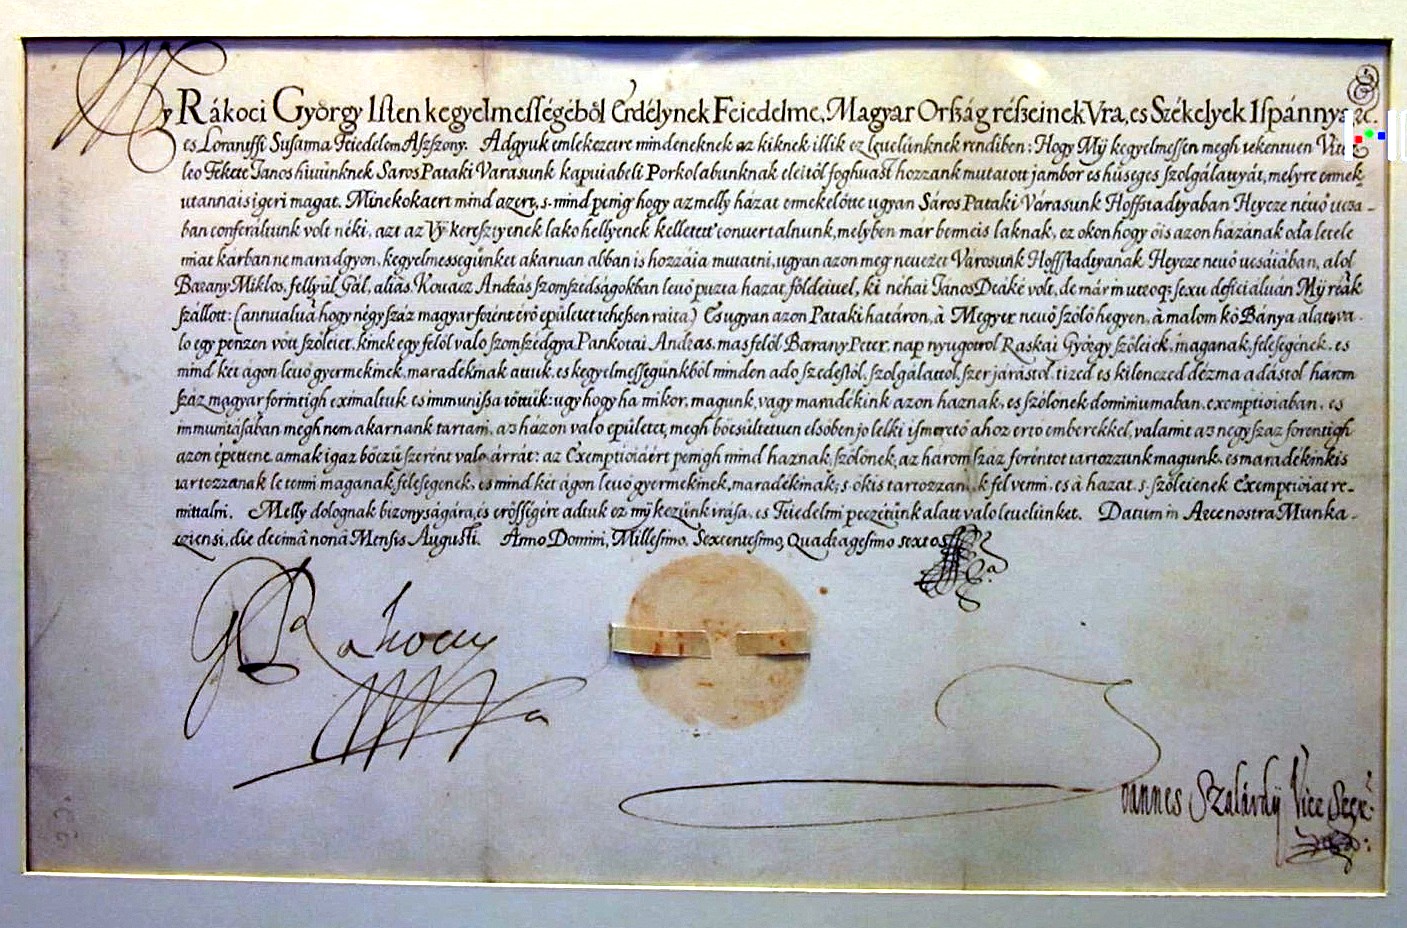 My Rákoci György Isten kegyelmességéből Erdélynek Feiedelme, Magyar Orszság részeinek Vra, es Székelyek Ispánny, &c.
es Lorantffi Susanna Feiedelem Aszszony. Adgyuk emlekezetre mindeneknek az kiknek illik ez leuelünknek rendiben: Hogy Mÿ kegyelmessen megh tekentuen Vitez
leo Fekete Janos hiuünknek Saros Pataki Varasunk kapuiabeli Porkolabunknak eleitöl foghuast hozzank mutatott jambor es hüseges szolgálattyát, melyre ennek
utannais igeri magat. Minekokaert mind azert, s mind penig hogy az melly házat ennekelötte ugyan Sáros Pataki Várasunk Hoffstadtyaban Heycze neuö ucza-
ban conferáltunk volt néki, azt az Vÿ keresztyenek lako hellyenek kelletett conuertalnunk, melyben mar benneis laknak, ez okon hogy öis azon hazának oda letele
miat kárban ne maradgyon, kegyelmességünket akaruan abban is hozzáia mutatni, ugyan azon meg neuezet Városunk Hoffstadtyanak Heycze neuö ucsáiában, alol
Barany Miklos, fellyül Gál, aliàs Kouacz András szomszédságokban leuö puzta hazat földeiuel, ki néhai János Deáké volt, de már utroq; sexu deficiáluán Mÿ reák
szállott: (annualuá hogy négy száz magyar forént érö epületet tehessen raita) Es ugyan azon Pataki határon, à Megyer neuö szölö hegyen, à malom kö Bánya alatt va-
lo egy penzen vött szöleiet, kinek egy felöl való szomszédgya Pankotai András, mas felöl Barany Peter, nap nyugotrol Raskai György szöleiek, maganak, felesegének, es
mind két ágon leuö gyermekinek, maradékinak attuk, es kegyelmességünkböl minden ado szedestöl, szolgálattol, szer járástol, tized es kilenczed dézma adástol harom
száz magyar forintigh eximaltuk es immunissa töttük: ugy hogy ha mikor, magunk, vagy maradékink azon haznak, es szölönek dominiumaban, exemptioiaban, es
immunitásában megh nem akarnank tartani, az házon valo epületet, megh böcsültetuen elsöben jo lelki ismeretö ahoz ertö emberekkel, valamit az negy szaz forentigh
azon epettene, annak igaz böczü szerént valo árrát: az Exemptioiáért penigh mind haznak, szölönek, az harom száz foréntot tartozzunk magunk, es maradékinkis
tartozzanak le tenni maganak, felesegenek, es mind két ágon leuö gyermekinek, maradékinak; s ökis tartozzanak fel venni, es à hazat, s szöleienek Exemptioiat re-
mittalni. Melly dolognak bizonyságára, es erösségére adtuk ez mÿ kezünk irása, es Feiedelmi peczétünk alatt valo leuelünket. Datum in Arce nostra Munka-
cziensi, die decimâ nonâ Mensis Augusti. Anno Domini, Millesimo, Sexcentesimo, Quadragesimo sexto.
G Rakoczy
Joannes Szalárdÿ Vice Secr: